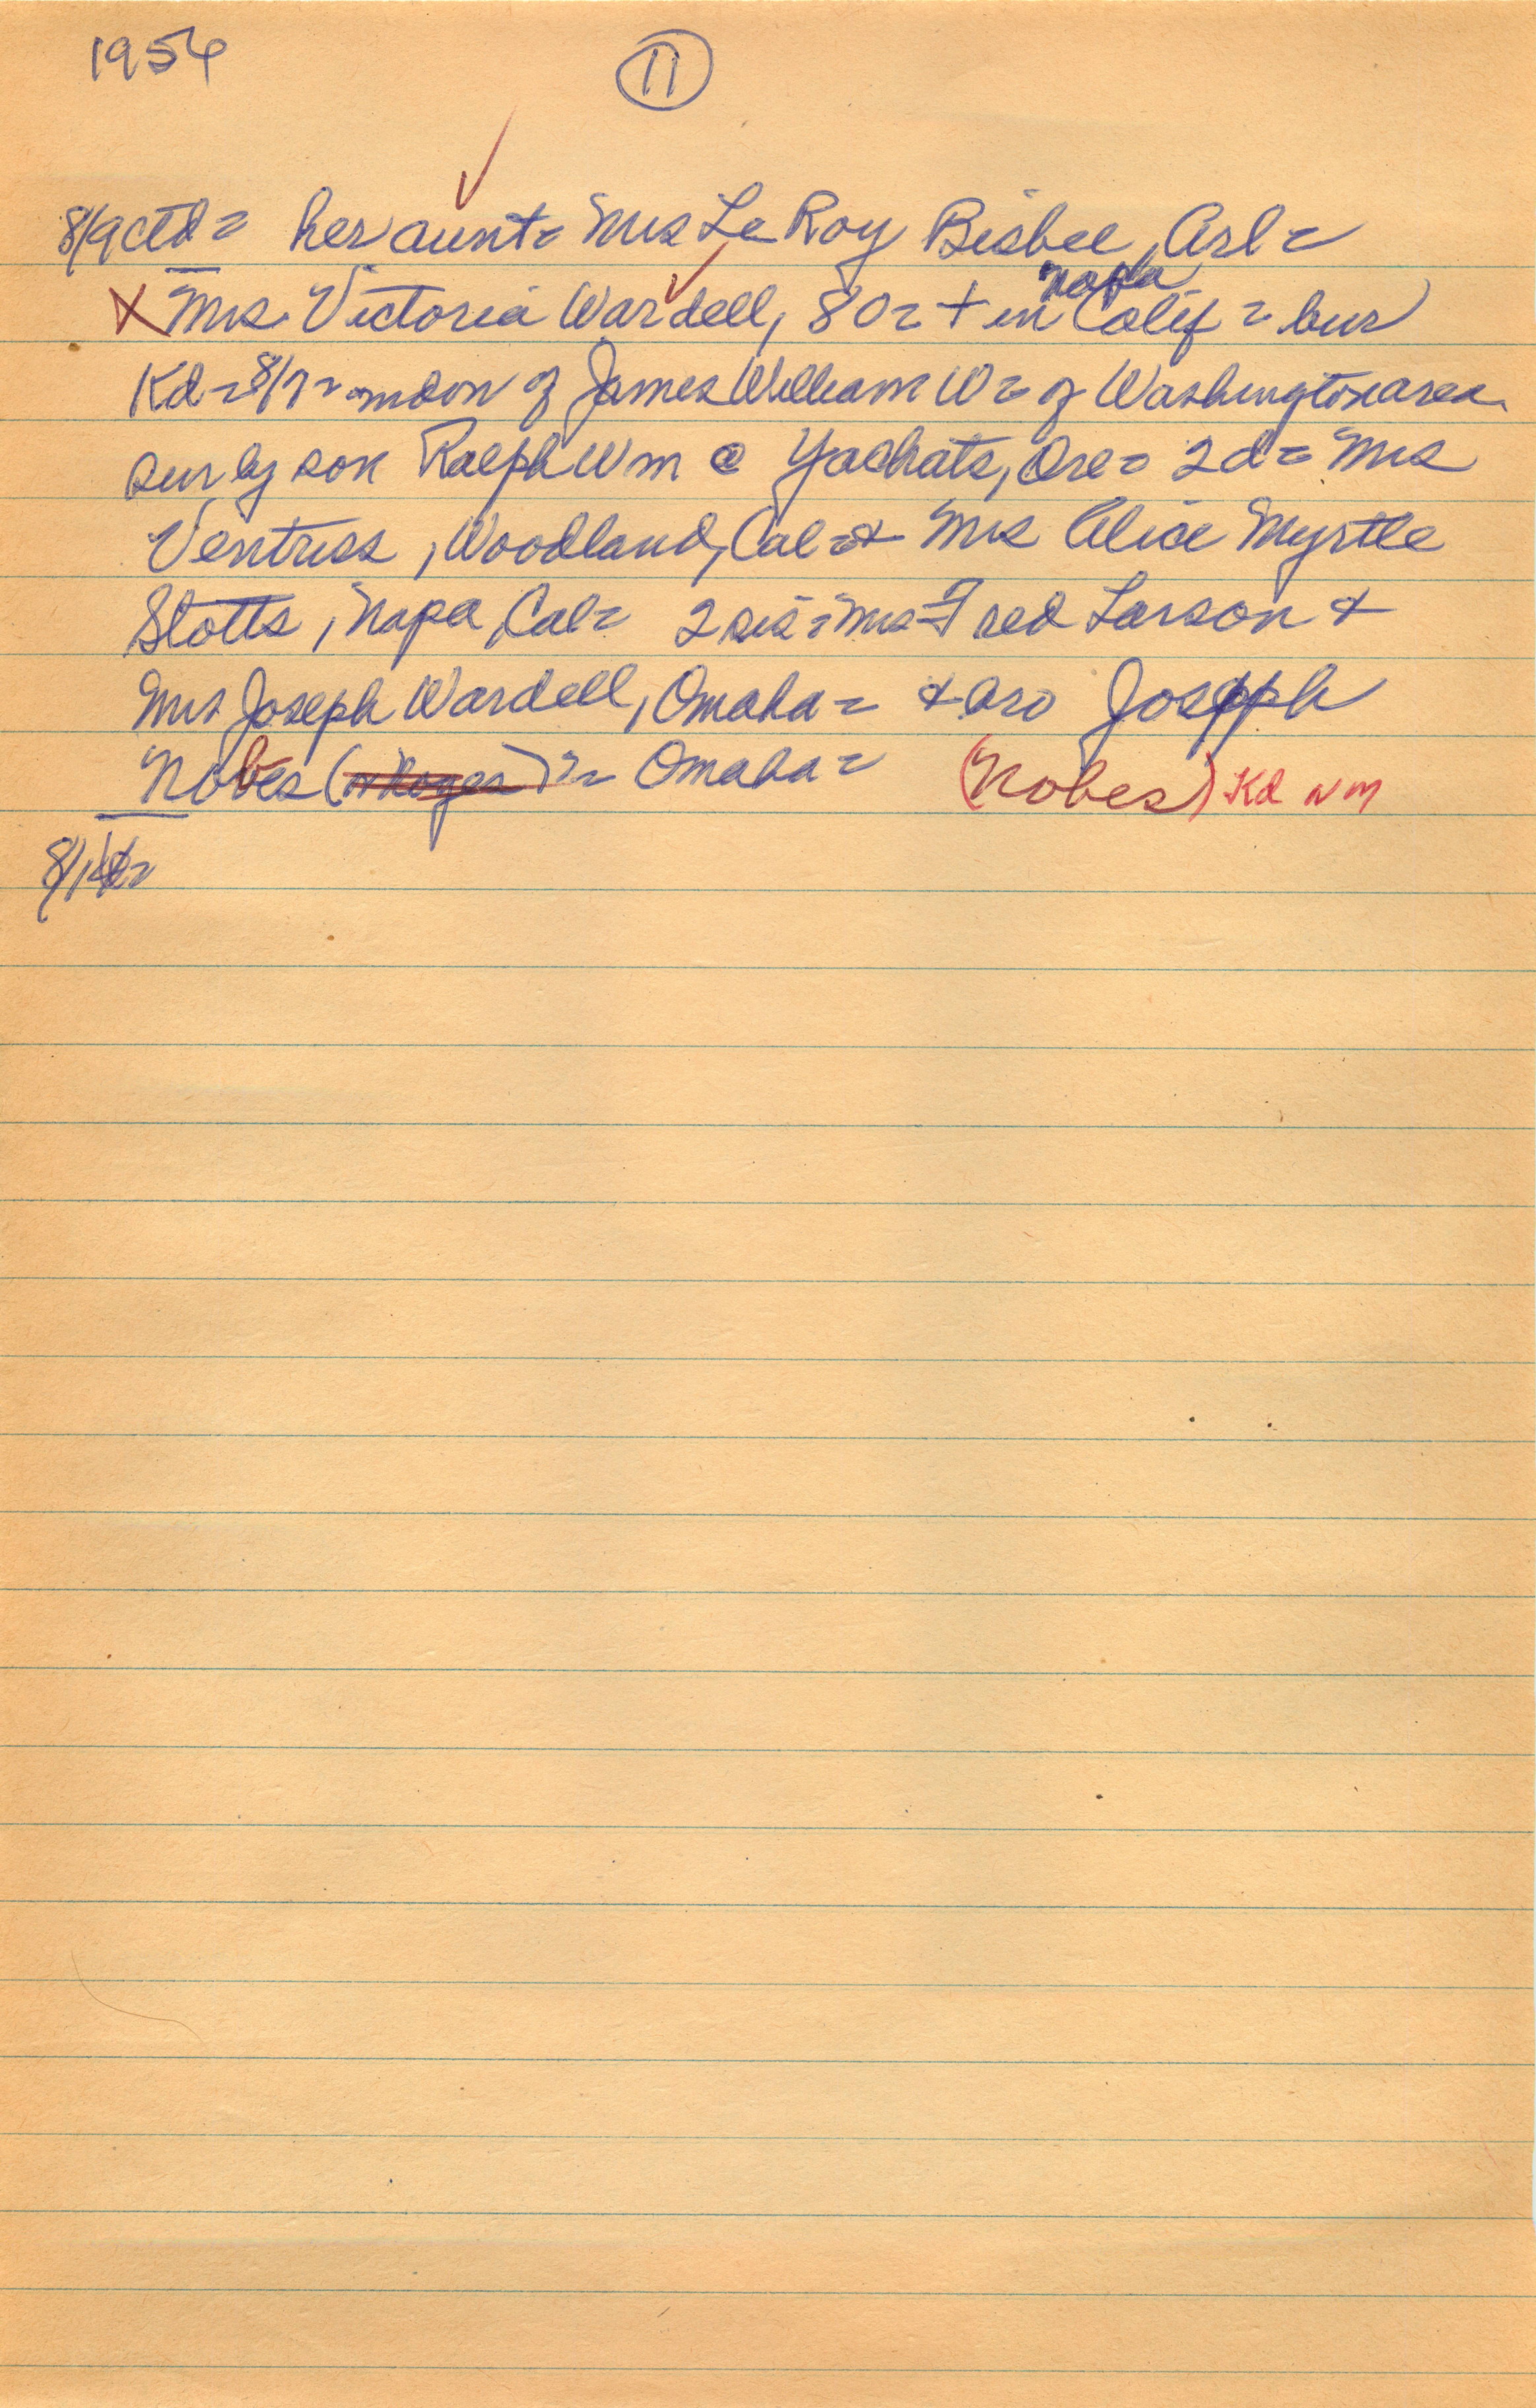 1954 11
8/9 ctd = her aunt = Mrs Le Roy Bisbee, Arl =
X Mrs. Victoria Wardell, 80 = + in Napa Calif = bur
Kd = 8/7 = of James William W = of Washington area.
sur by son Ralph Wm @ Yachats, Ore = 2 d = Mrs
Ventriss, Woodland, Cal = & Mrs Alice Myrtle
Stotts, Napa, Cal = 2 sis = Mrs Fred Larson &
Mrs Joseph Wardell, Omaha = & bro Joseph
Nobes ( )? = Omaha = (Nobes) Kd NM